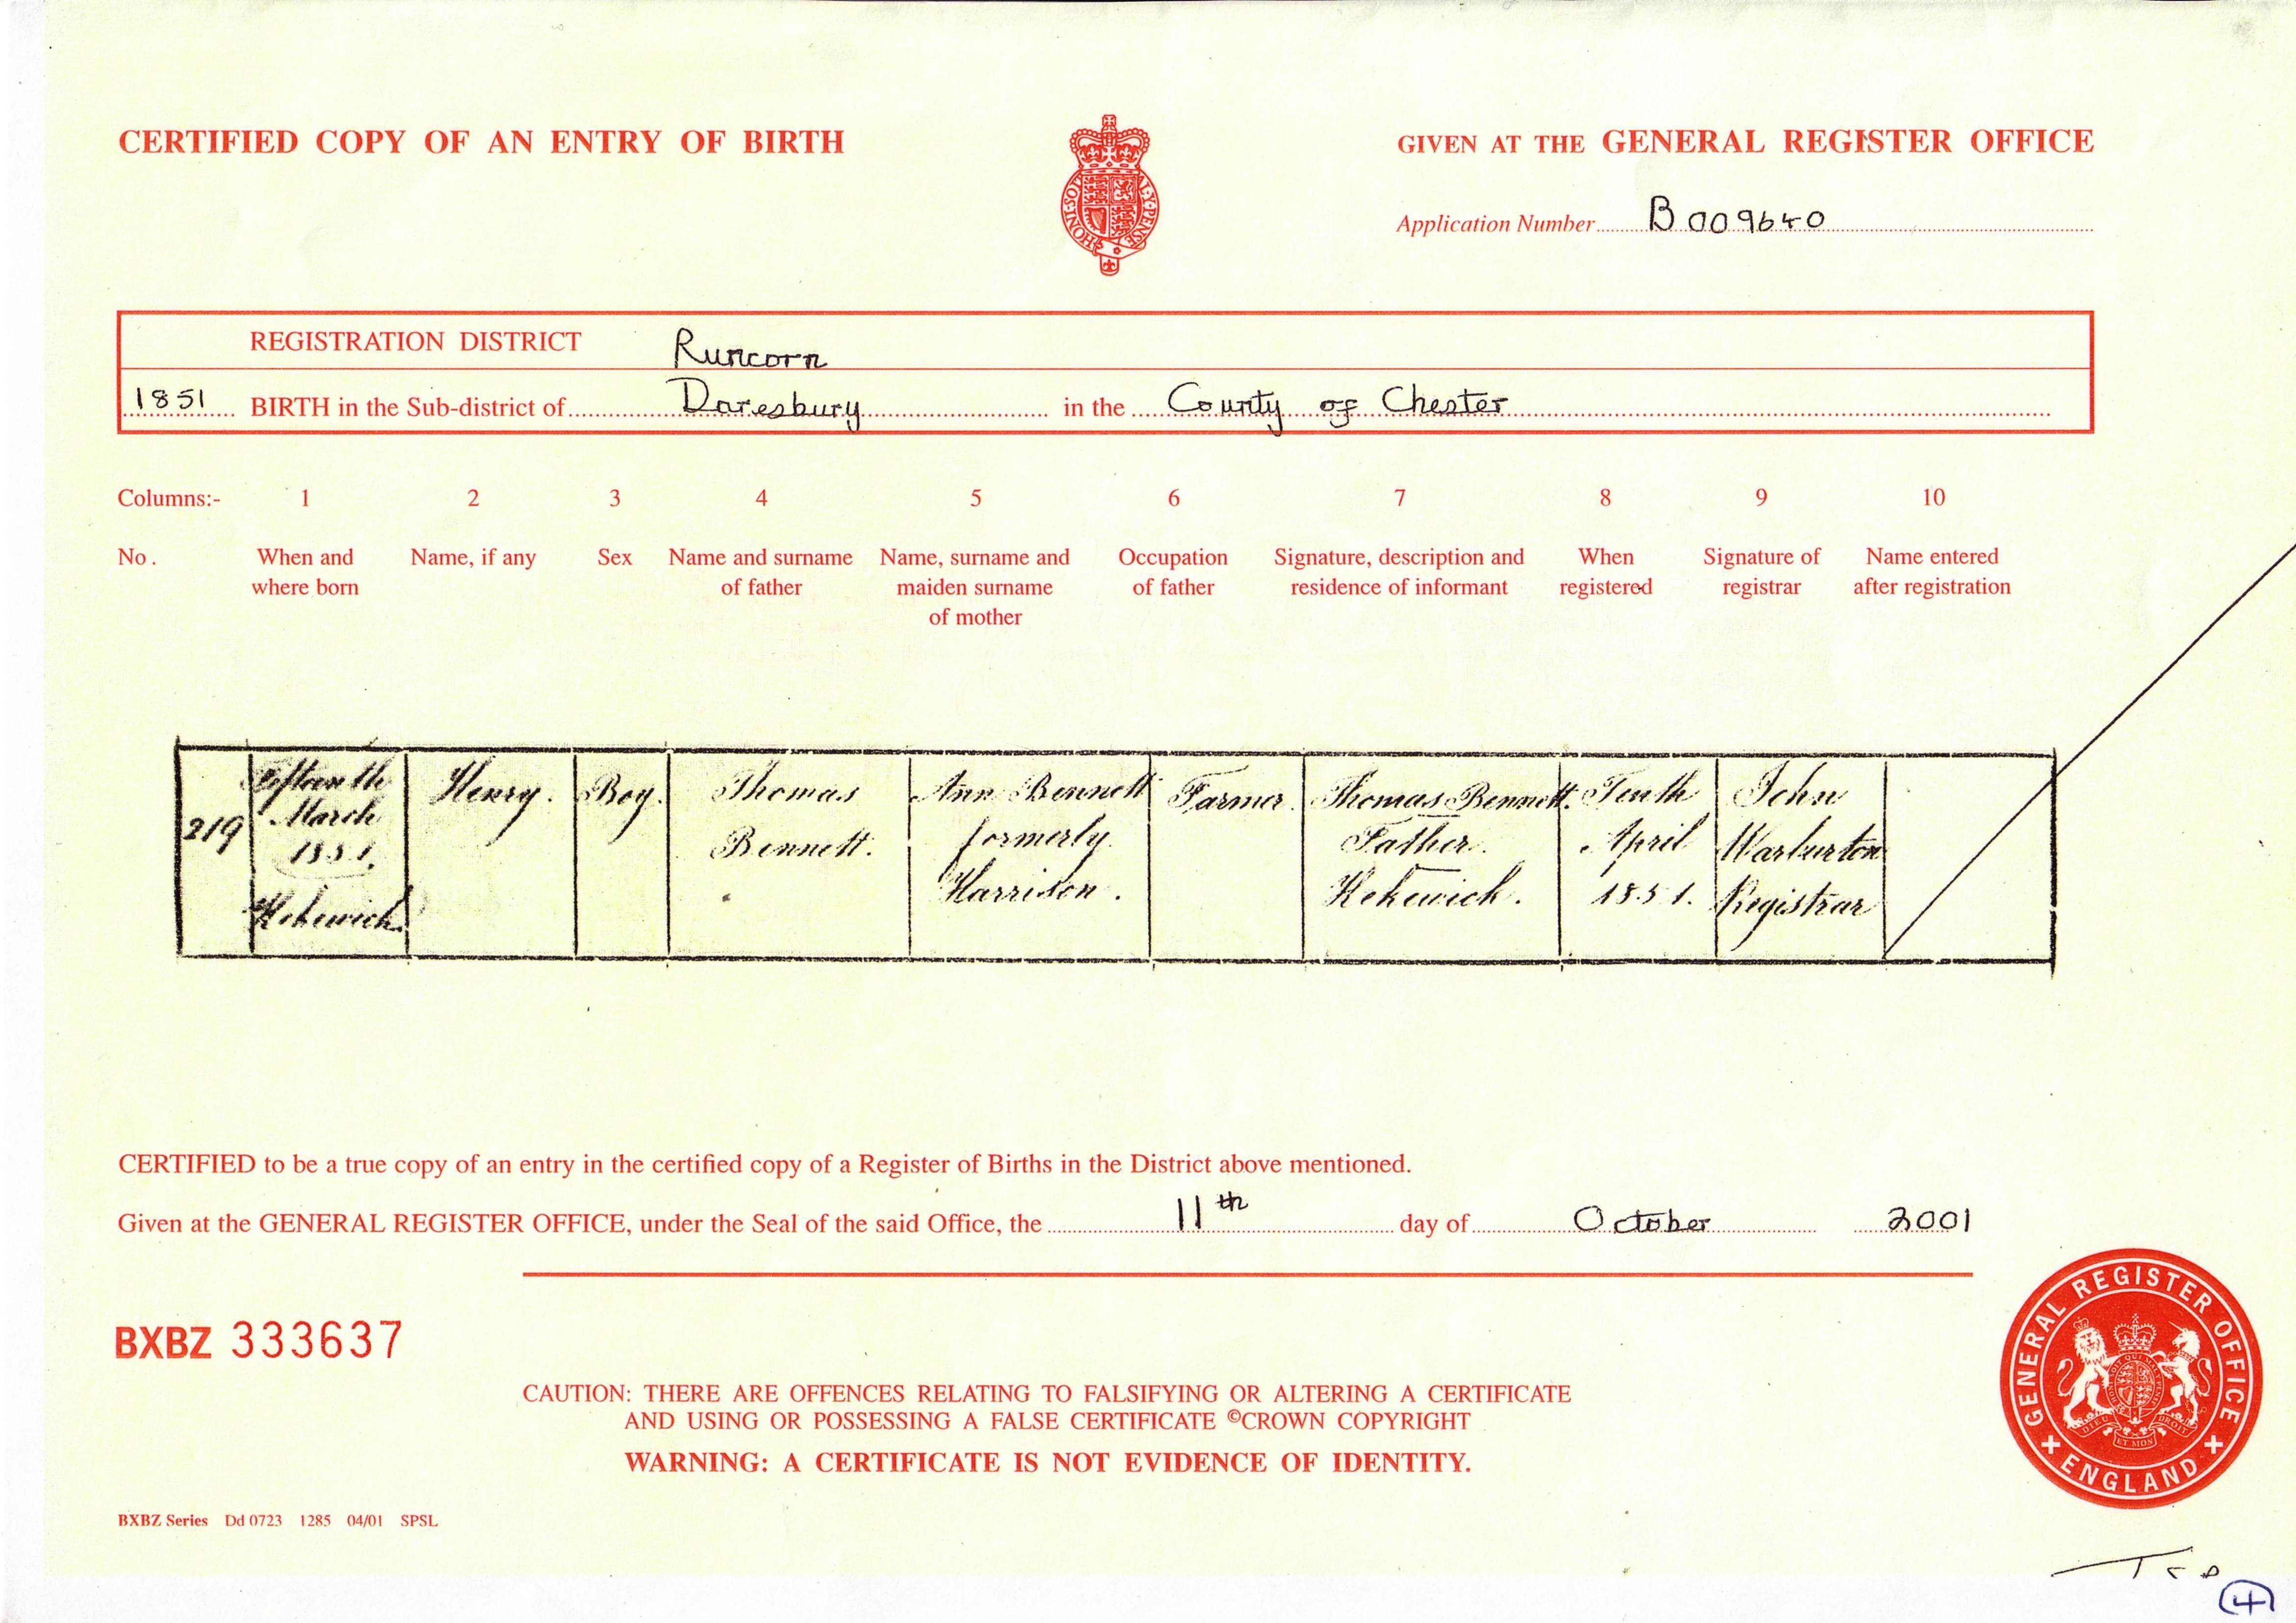 CERTIFIED COPY OF AN ENTRY OF BIRTH
GIVEN AT THE GENERAL REGISTER OFFICE
HONI·SOIT AL·Y·PENSE
Application Number B 009640
REGISTRATION DISTRICT Runcorn
1851 BIRTH in the Sub-district of Daresbury in the County of Chester
Columns:- 1 2 3 4 5 6 7 8 9 10
No. When and where born Name, if any Sex Name and surname of father Name, surname and maiden surname of mother Occupation of father Signature, description and residence of informant When registered Signature of registrar Name entered after registration
219
Fifteenth
March
1851.
Kekewich
Henry.
Boy.
Thomas
Bennett.
Ann Bennett
formerly
Harrison.
Farmer.
Thomas Bennett.
Father.
Kekewich.
Tenth
April
1851.
John
Warburton
Registrar
CERTIFIED to be a true copy of an entry in the certified copy of a Register of Births in the District above mentioned.
Given at the GENERAL REGISTER OFFICE, under the Seal of the said Office, the 11th day of October 2001
BXBZ 333637
CAUTION: THERE ARE OFFENCES RELATING TO FALSIFYING OR ALTERING A CERTIFICATE
AND USING OR POSSESSING A FALSE CERTIFICATE ©CROWN COPYRIGHT
WARNING: A CERTIFICATE IS NOT EVIDENCE OF IDENTITY.
GENERAL REGISTER OFFICE
ENGLAND
DIEU ET MON DROIT
BXBZ Series Dd 0723 1285 04/01 SPSL
4